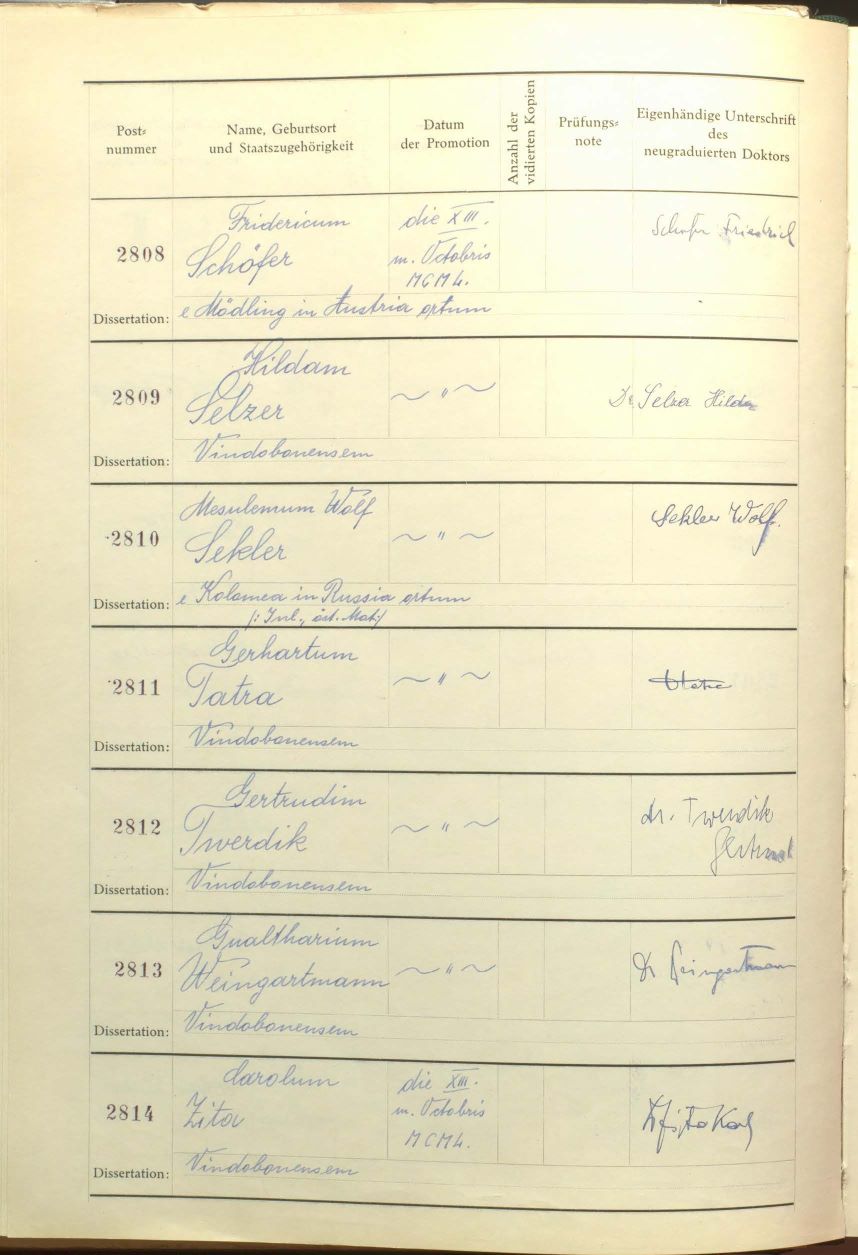 Post=
nummer
Name, Geburtsort
und Staatszugehörigkeit
Datum
der Promotion
Anzahl der
vidierten Kopien
Prüfungs=
note
Eigenhändige Unterschrift
des
neugraduierten Doktors
2808
Fridericum
Schöfer
die XIII.
m. Octobris
MCML.
Friedrich
Dissertation: e Mödling in Austria ortum
2809
Hildam
Selzer
~ " ~
Dr Selzer Hilda
Dissertation: Vindobonensem
2810
Mesulemum Wolf
Sekler
~ " ~
Sekler Wolf.
Dissertation: e Kolomea in Russia ortum
2811
Gerhartum
Tatra
~ " ~
Dissertation: Vindobonensem
2812
Gertrudim
Twerdik
~ " ~
dr. Twerdik
Gertrud
Dissertation: Vindobonensem
2813
Gualtharium
Weingartmann
~ " ~
Dr Weingartmann
Dissertation: Vindobonensem
2814
Carolum
Zita
die XIII.
m. Octobris
MCML.
Dr Zita Karl
Dissertation: Vindobonensem